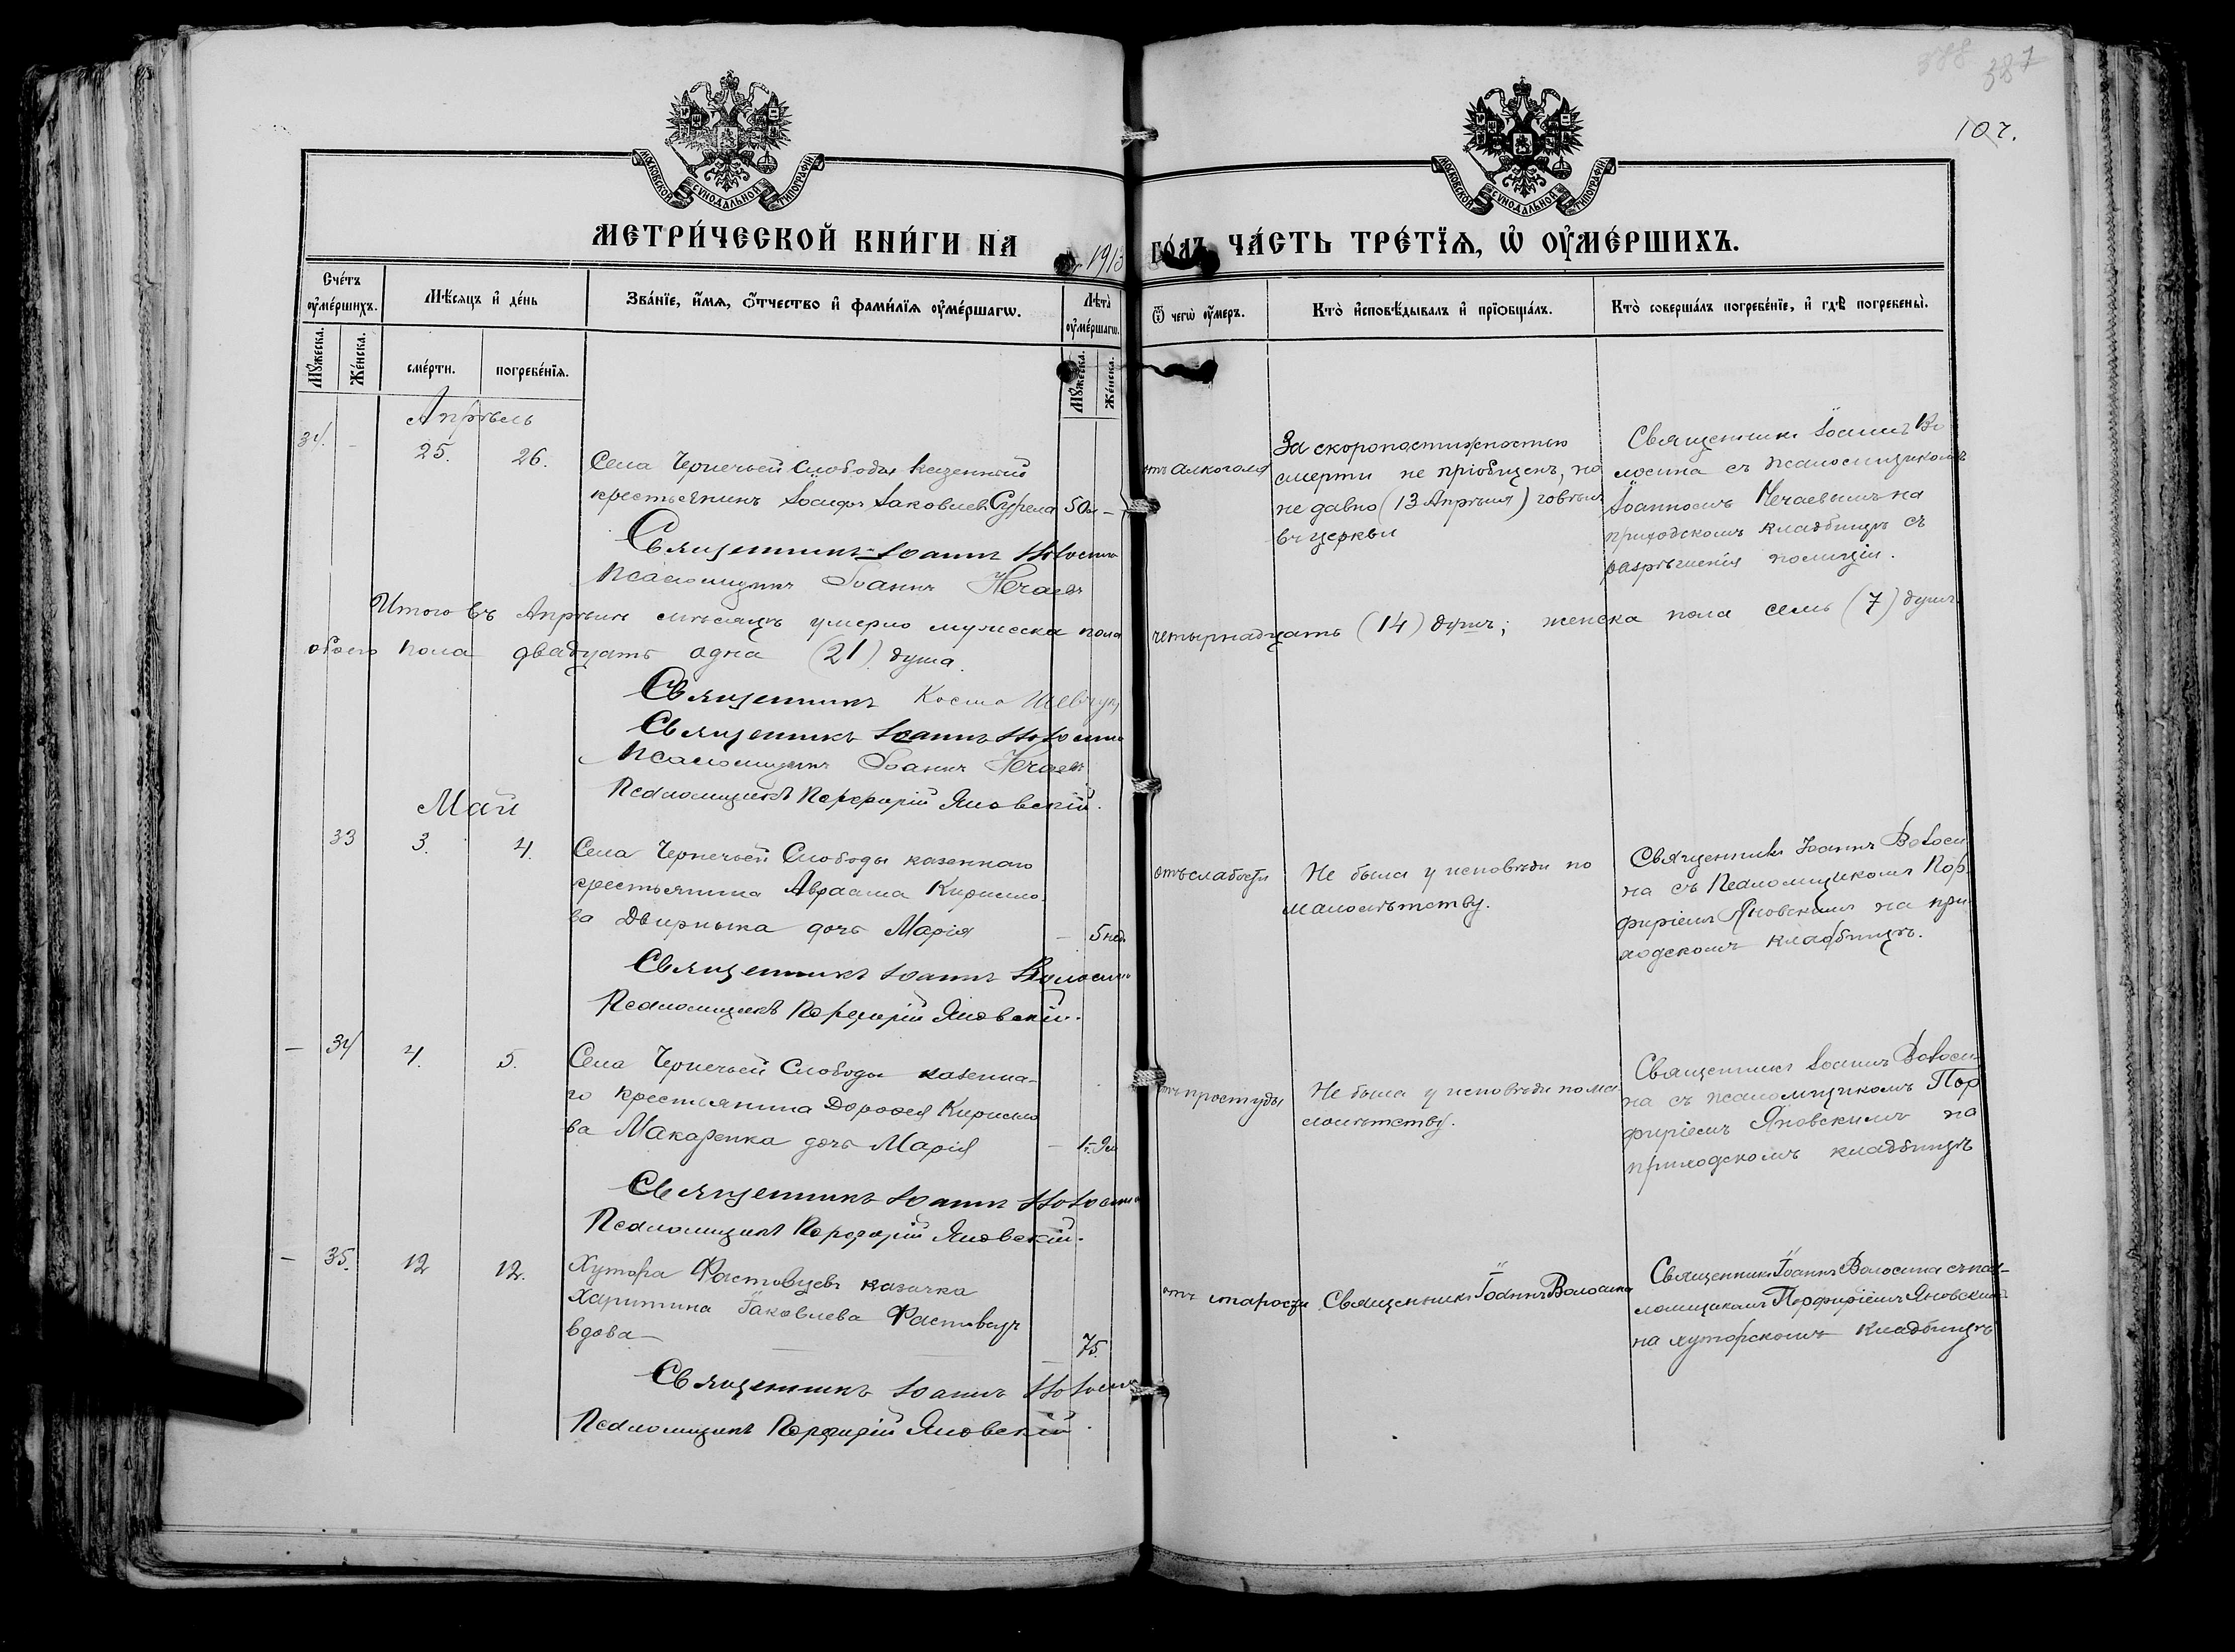 387
107.
МОСКОВСКОЙ СѴНОДАЛЬНОЙ ТИПОГРАФІИ
МОСКОВСКОЙ СѴНОДАЛЬНОЙ ТИПОГРАФІИ
МЕТРИ́ЧЕСКОЙ КНИ́ГИ НА 1913 ГО́ДЪ ЧА́СТЬ ТРЕ́ТЇѦ, Ѡ҆ ОУ҆МЕ́РШИХЪ.
Сче́тъ оу҆ме́ршихъ.
Мꙋ́жеска.
Же́нска.
Мѣ́сѧцъ и҆ де́нь
сме́рти.
погребе́нїѧ.
Зва́нїе, и҆́мѧ, ѻ҆́тчество и҆ фами́лїѧ оу҆ме́ршагѡ.
Лѣта̀ оу҆ме́ршагѡ.
Мꙋ́жеска.
Же́нска.
Ѿ чегѡ̀ оу҆́меръ.
Кто̀ и҆сповѣ́дывалъ и҆ прїѻбща́лъ.
Кто̀ соверша́лъ погребе́нїе, и҆ гдѣ̀ погребены̀.
Апрѣль
34. - 25. 26.
Села Чернечьей Слободы казенный
крестьянинъ Іаковлев 50 л -
отъ алкоголя
За скоропостижностью
смерти не пріобщенъ, но
не давно (13 Апрѣля) говѣлъ
въ церкви
Священникъ Іоаннъ Во
лосина съ псаломщикомъ
Іоанномъ Нечаевымъ на
приходскомъ кладбищѣ съ
разрѣшенія полиціи.
Священникъ Іоаннъ Волосина
Псаломщикъ Іоаннъ Нечаев
Итого въ Апрѣлѣ мѣсяцѣ умерло мужеска пола четырнадцать (14) душъ; женска пола семь (7) душъ.
обоего пола двадцать одна (21) душа.
Священникъ Косма Шевчук
Священникъ Іоаннъ Волосина
Псаломщикъ Іоаннъ Нечаев
Псаломщикъ Порфирій Яновскій.
Май
33 3. 4.
Села Чернечьей Слободы казеннаго
крестьянина Авраама Кирилло
ва Двирныка дочь Марія - 5 нед
отъ слабости
Не была у исповѣди по
малолѣтству.
Священникъ Іоаннъ Волоси
на съ Псаломщикомъ Пор
фиріемъ Яновскимъ на при
ходскомъ кладбищѣ.
Священникъ Іоаннъ Волосина
Псаломщикъ Порфирій Яновскій.
- 34 4. 5.
Села Чернечьей Слободы казенна-
го крестьянина Дорофея Кирилло
ва Макаренка дочь Марія -
отъ простуды
Не была у исповѣди по ма
лолѣтству.
Священникъ Іоаннъ Волоси
на съ псаломщикомъ Пор
фиріемъ Яновскимъ на
приходскомъ кладбищѣ
Священникъ Іоаннъ Волосина
Псаломщикъ Порфирій Яновскій.
- 35. 12 12.
Хутора Фастовцевъ казачка
Харитина Іаковлева Фастовецъ
вдова — - 75.
отъ старости
Священникъ Іоаннъ Волосина
Священникъ Іоаннъ Волосина съ пса-
ломщикомъ Порфиріемъ Яновскимъ
на хуторскомъ кладбищѣ
Священникъ Іоаннъ Волосина
Псаломщикъ Порфирій Яновскій.